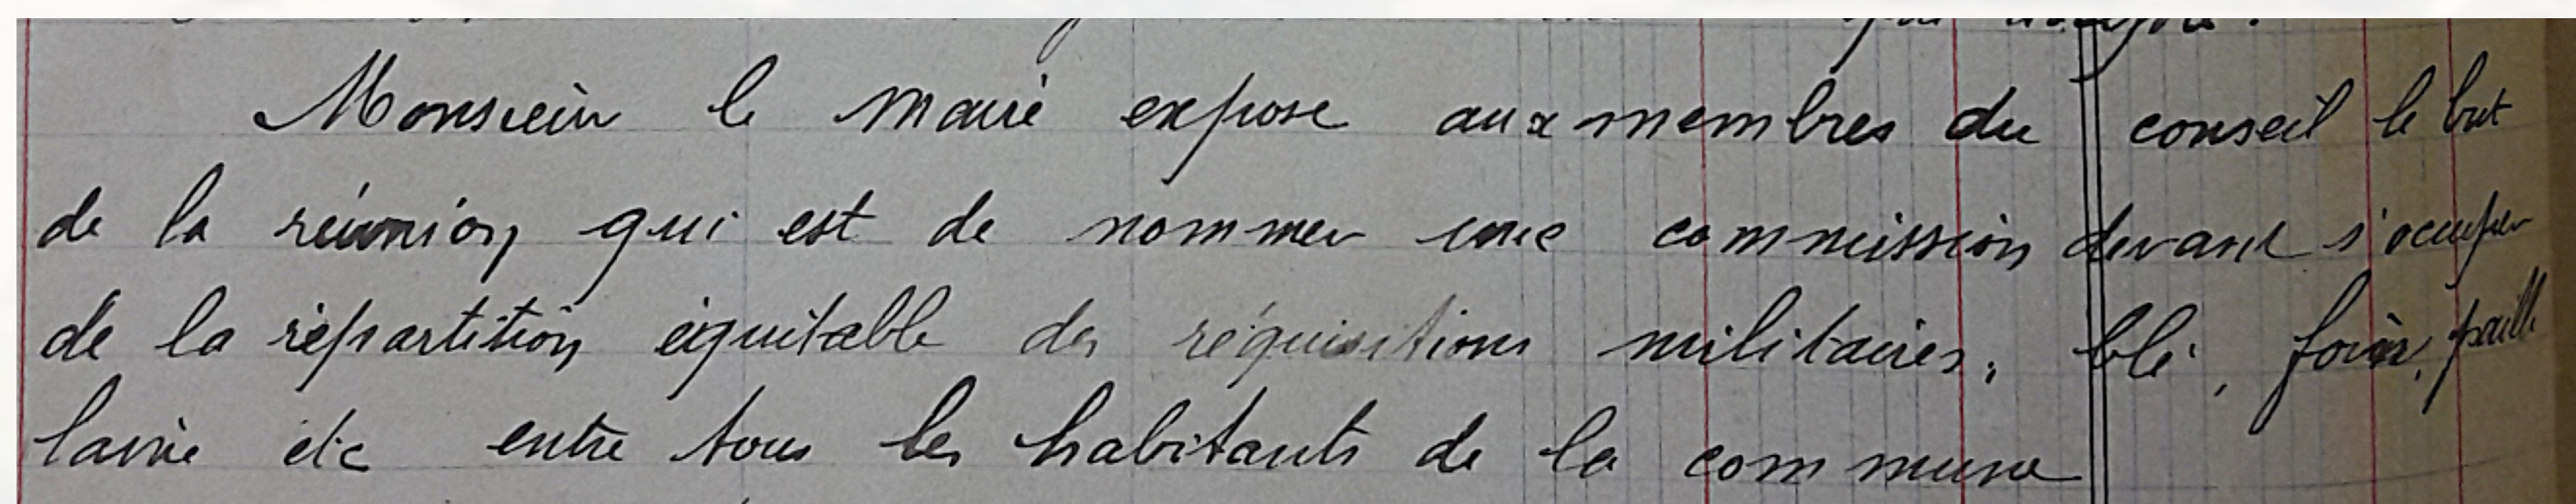 Monsieur le Maire expose aux membres du conseil le but
de la réunion qui est de nommer une commission devant s'occuper
de la répartition équitable des réquisitions militaires, blé, foin, paille
laine etc entre tous les habitants de la commune